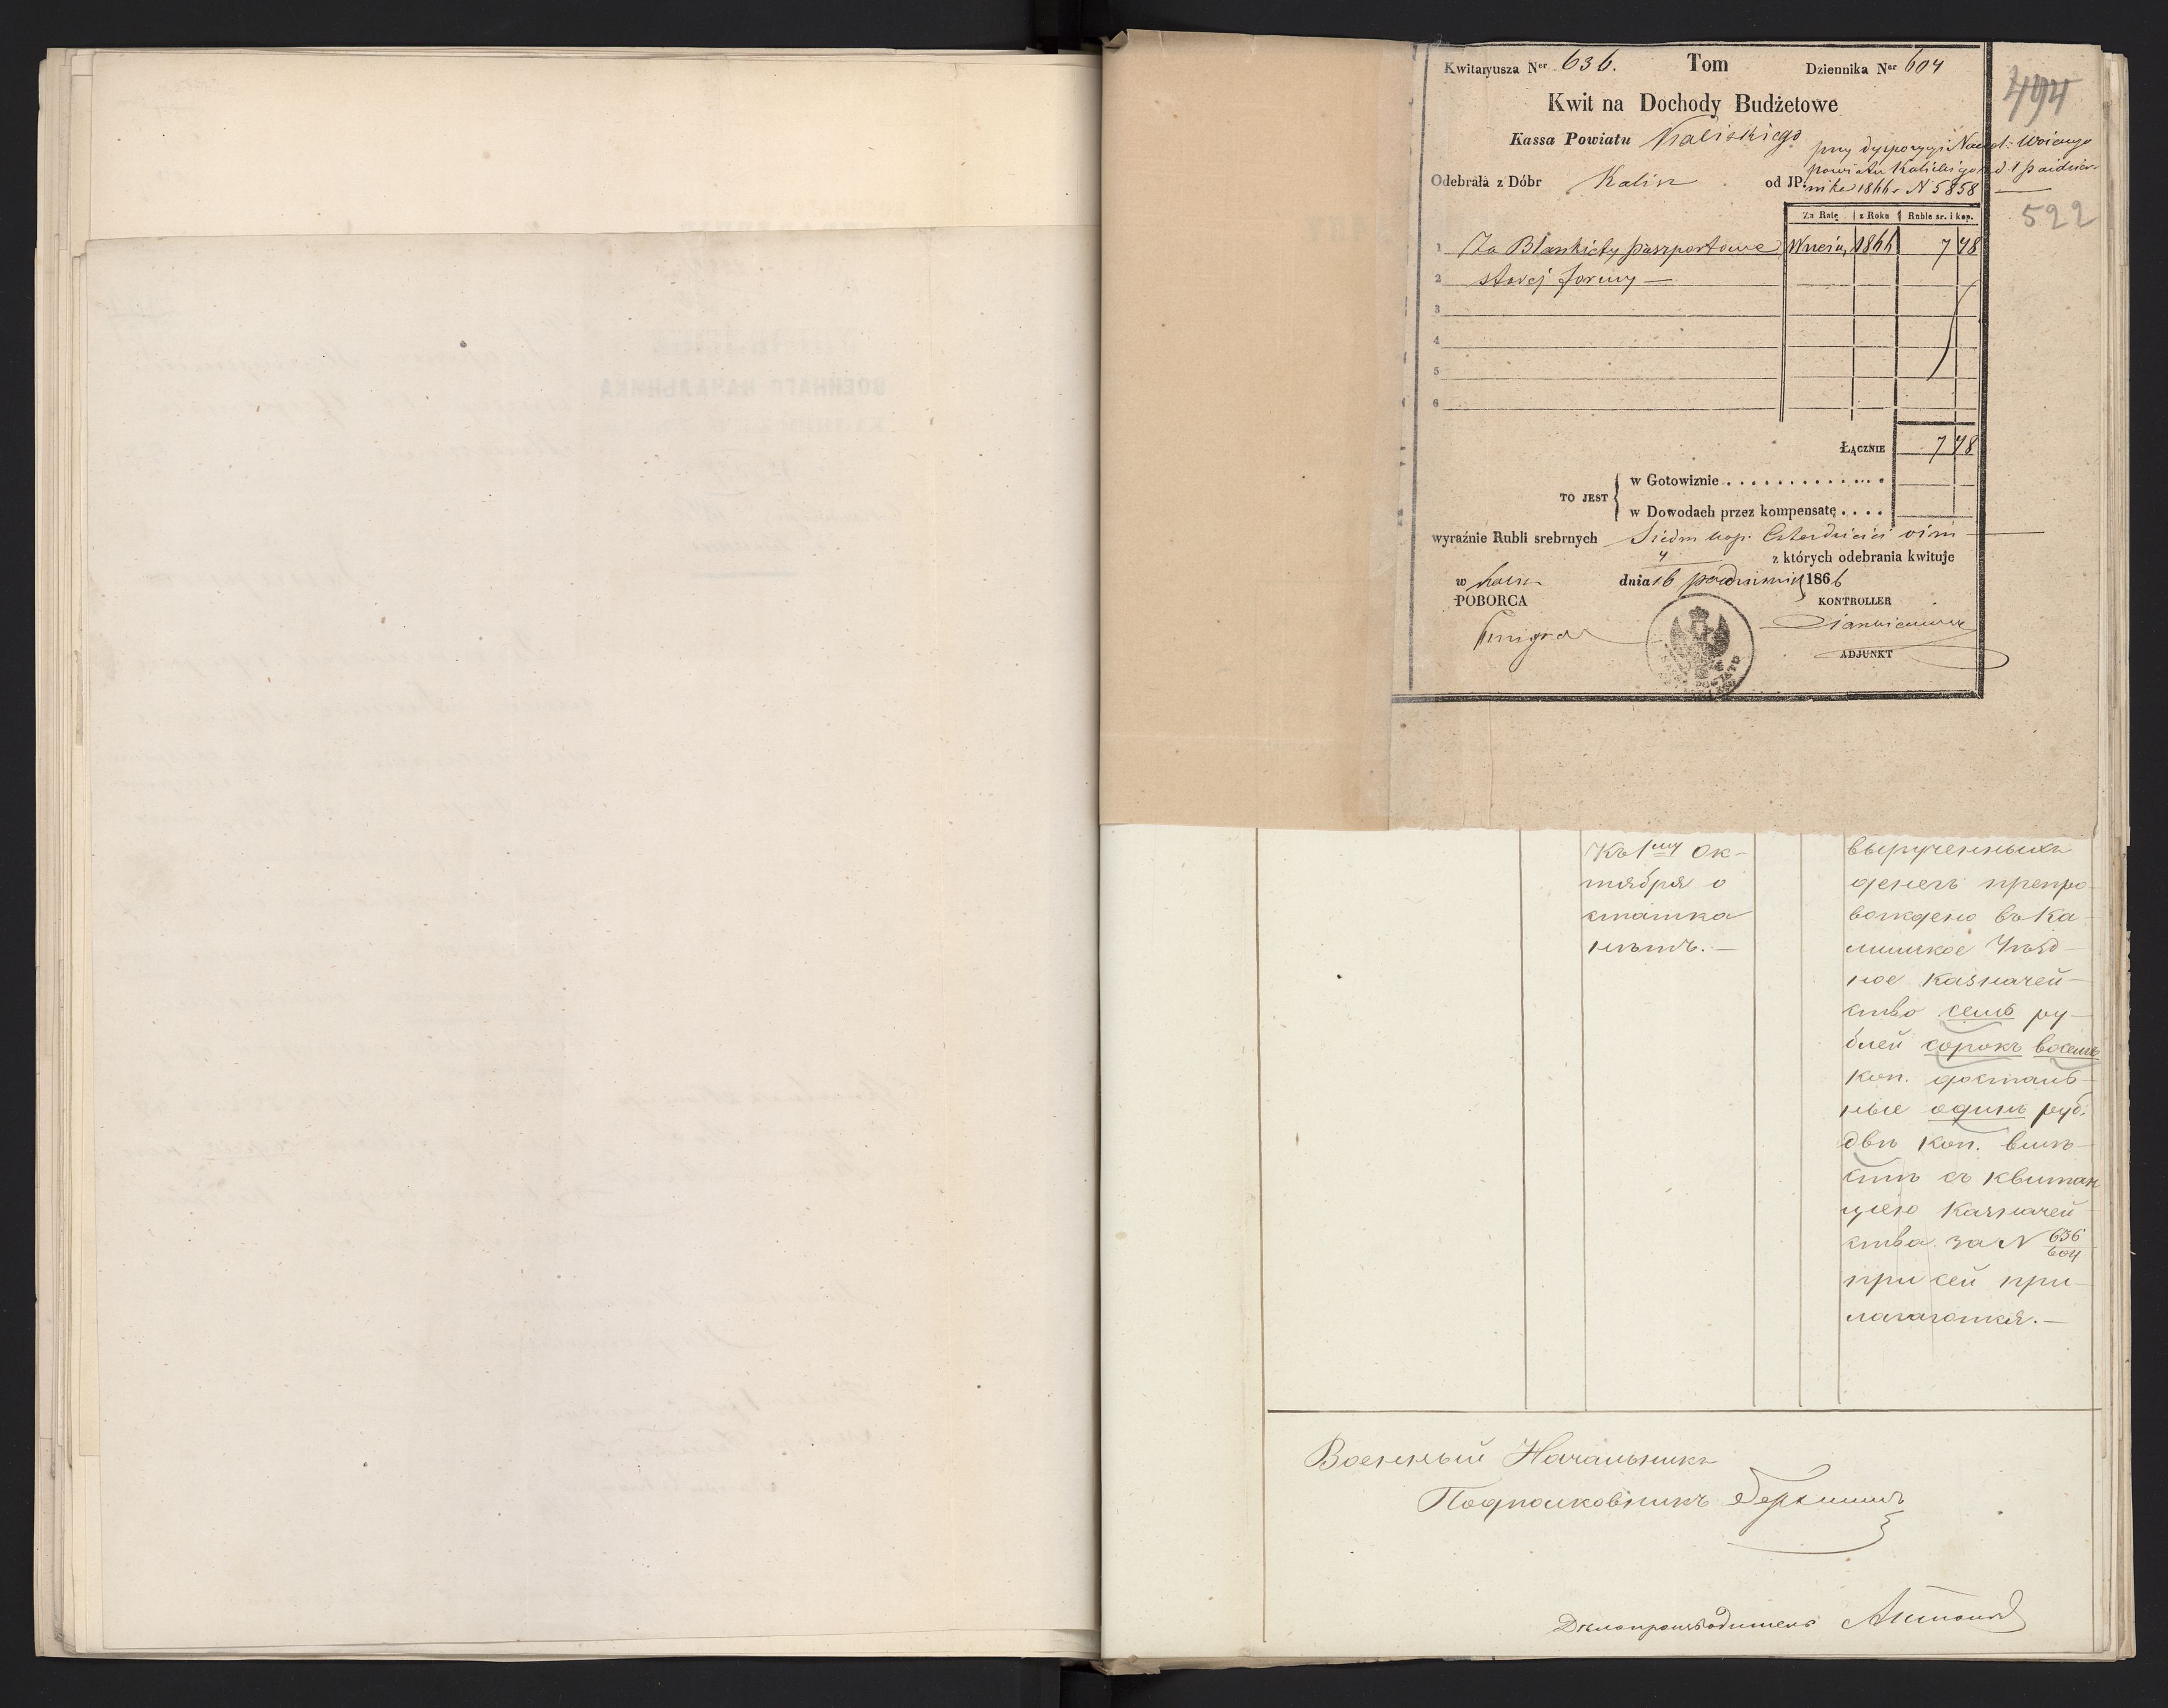 Kwitaryusza Ner 636. Tom Dziennika Ner 604
494
Kwit na Dochody Budżetowe
Kassa Powiatu Kaliskiego
przy dyspozycyi Nacz: Woiennego
powiatu Kaliskiego d. 1 paździer-
Odebrała z Dóbr Kalisz od JP. nika 1866 r N 5858
522
Za Ratę z Roku Ruble sr. i kop.
1 Za Blankiety paszportowe Wrzesień 1866 7 48
2 starej formy —
3
4
5
6
ŁĄCZNIE 7 48
w Gotowiznie
TO JEST
w Dowodach przez kompensatę
wyraźnie Rubli srebrnych Siedm kop. Czterdzieści ośm
z których odebrania kwituje
w Kalisz dnia 16 października 1866
POBORCA KONTROLLER
ADJUNKT
Къ 1му Ок-
тября о
статка
нѣтъ. —
вырученныхъ
денегъ препро-
вождено въ Ка-
лишское Уѣзд-
ное Казначей-
ство семь ру-
блей сорокъ восемь
коп. досталь-
ные одинъ руб.
двѣ коп. вмѣ-
стѣ съ квитан
цiею Казначей-
ства за N 636/604
при сей при-
лагаются. —
Военный Начальникъ
Подполковникъ
Дѣлопроизводитель